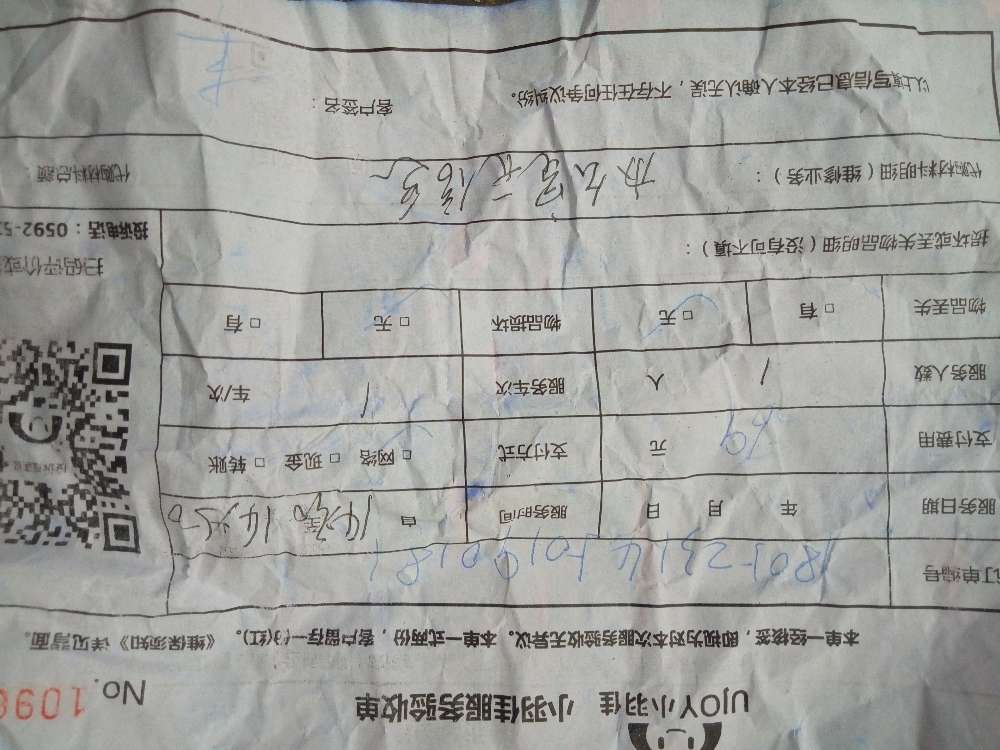 UJOY小羽佳 小羽佳服务验收单
No. 1096
本单一经核签,即视为对本次服务验收无异议。本单一式两份,客户留存一份(红)。《维保须知》详见背面。
订单编号
服务日期 年 月 日 服务时间
支付费用 69 元 支付方式 □ 网络 □ 现金 □ 转账
服务人数 1 人 服务车次 1 车/次
物品丢失 □ 有 □ 无 物品损坏 □ 无 □ 有
损坏或丢失物品明细(没有可不填):
扫码评价或
投诉电话:0592-5
代购材料明细(维修业务):
代购材料总额:
以上填写信息已经本人确认无误,不存在任何争议纠纷。 客户签名: